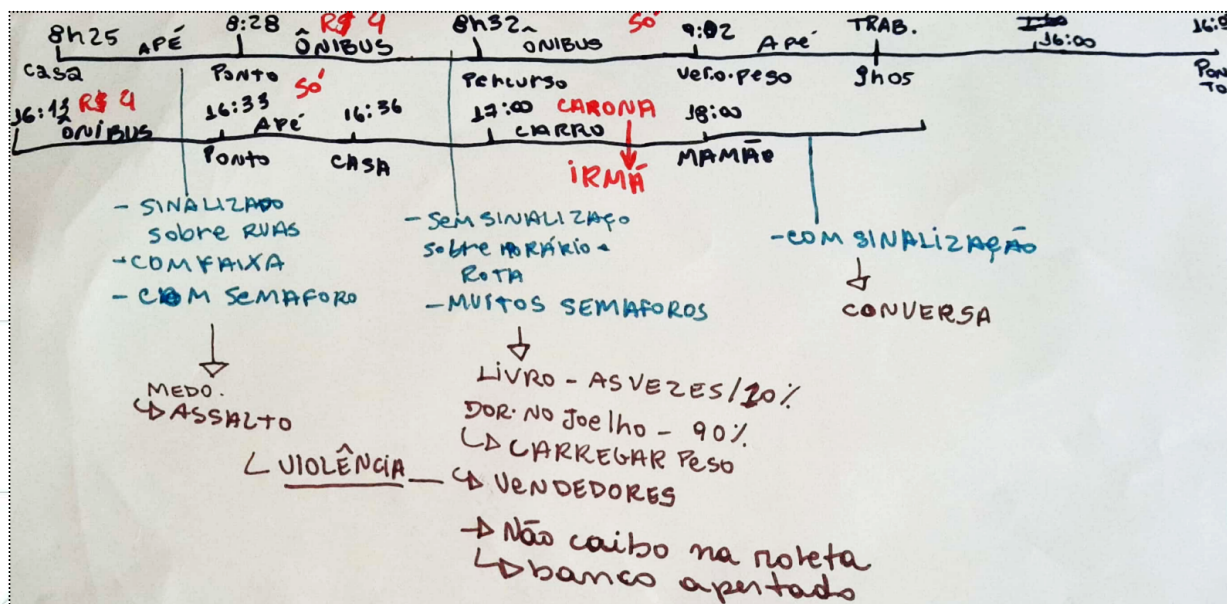 8h25 APÉ 8:28 R$ 4 ÔNIBUS 8h32 ÔNIBUS SÓ 9:02 APÉ TRAB. 16:00
casa PONTO percurso vero.peso 9h05 PONTO
R$ 4 ÔNIBUS 16:33 APÉ SÓ 16:36 17:00 CARRO CARONA 18:00
PONTO CASA IRMÃ MAMÃE
- SINALIZADO
sobre RUAS
- COM FAIXA
- COM SEMAFORO
MEDO.
↳ ASSALTO
- SEM SINALIZAÇO
sobre HORÁRIO -
ROTA
- MUITOS SEMAFOROS
LIVRO - AS VEZES/10%
DOR. NO Joelho - 90%
↳ CARREGAR PESO
VIOLÊNCIA — ↳ VENDEDORES
→ Não caibo na roleta
↳ banco apertado
- COM SINALIZAÇÃO
CONVERSA